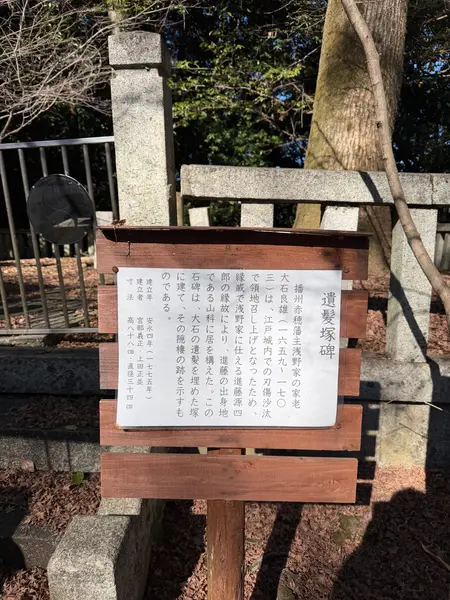 遺髪塚碑
播州赤穂藩主浅野家の家老
大石良雄（一六五九〜一七〇
三）は、江戸城内での刃傷沙汰
で領地召し上げとなったため、
縁戚で浅野家に仕える進藤源四
郎の縁故により、進藤の出身地
である山科に居を構えた。この
石碑は、大石の遺髪を埋めた塚
に建て、その隠棲の跡を示すも
のである。
建立年　安永四年（一七七五年）
建立者　宮部義正・上田正並
寸　法　高八八㎝、直径三十四㎝